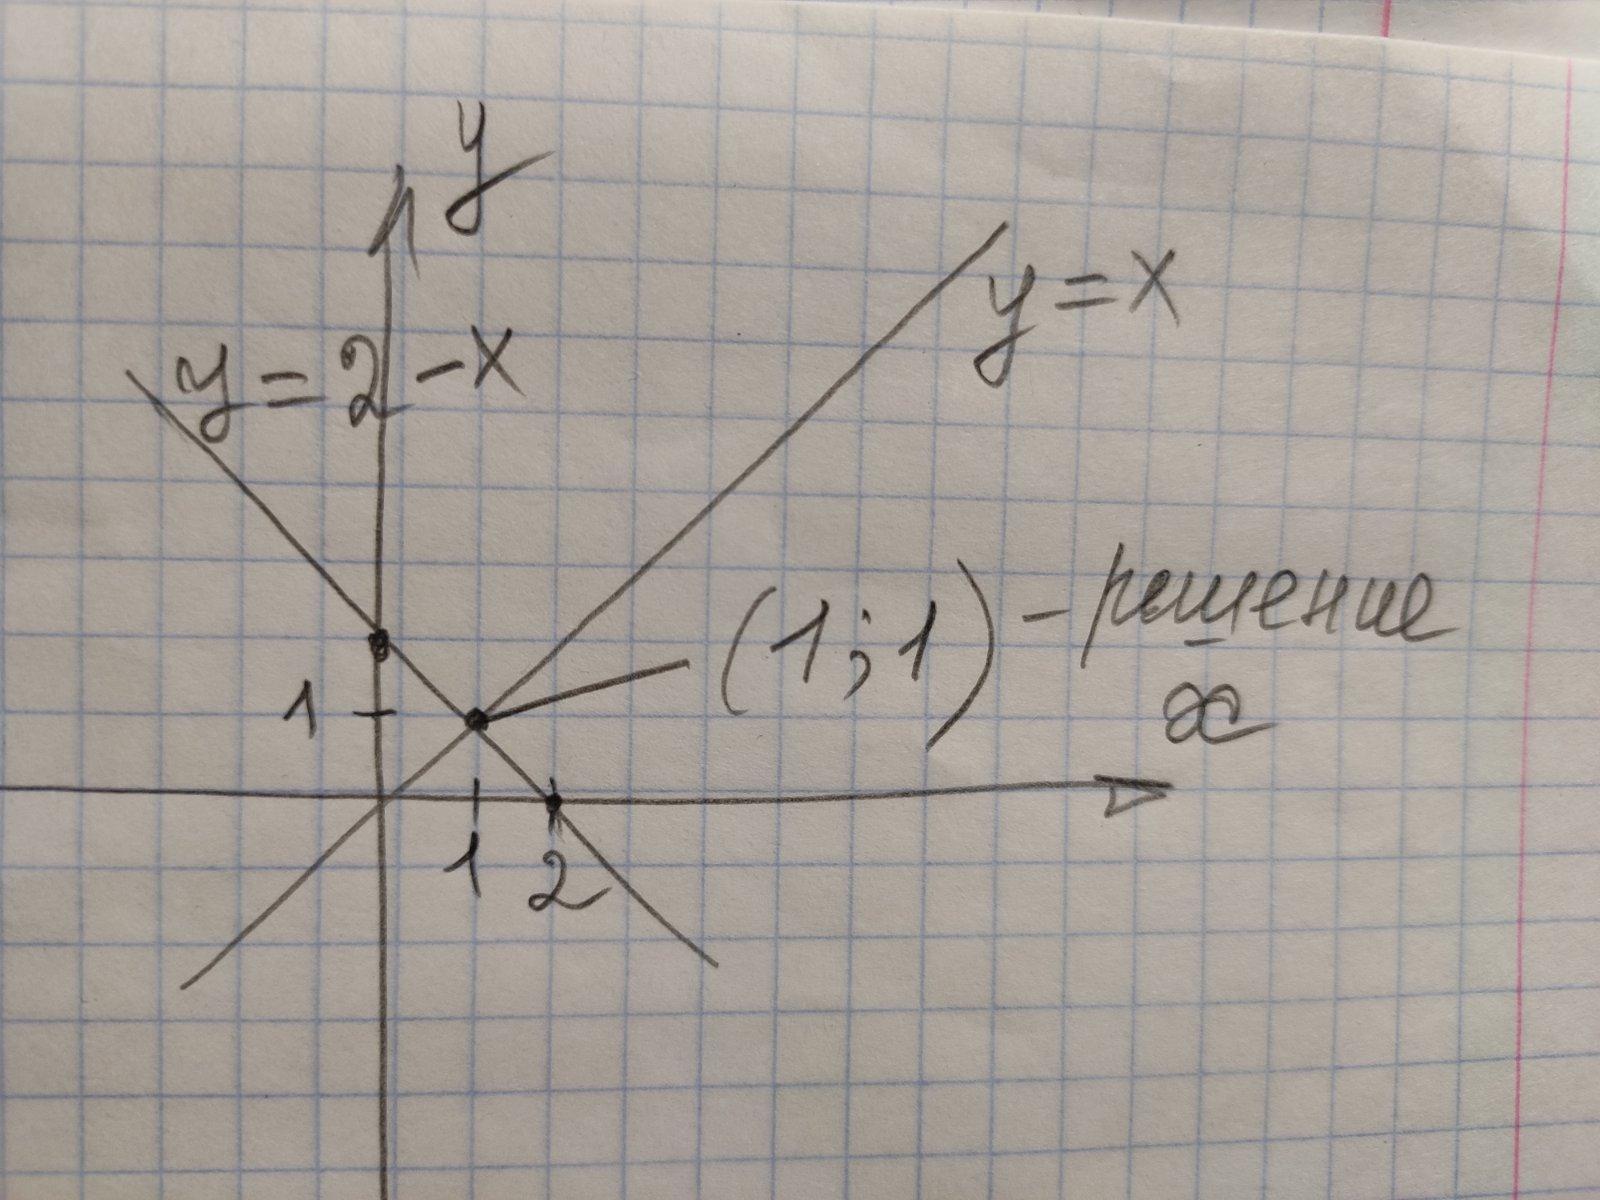 y
y = x
y = 2 - x
(1; 1) - решение
1
x
1 2